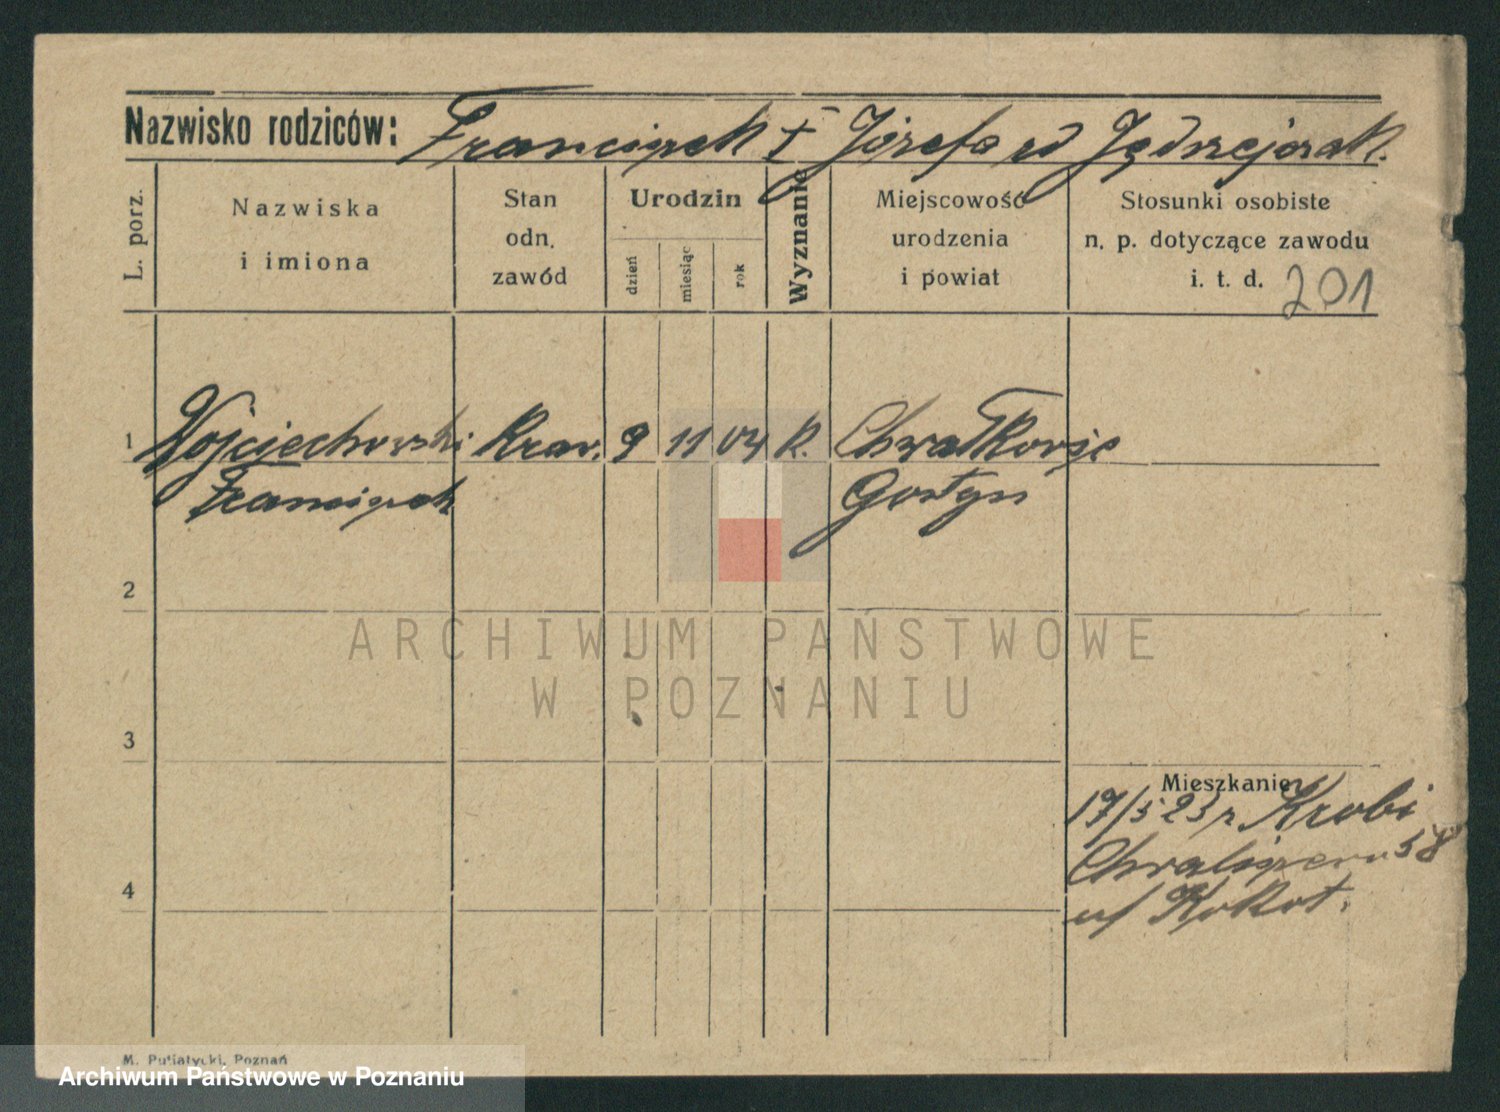 Nazwisko rodziców: Franciszek i Józefa zd Jędrzejczak.
L. porz.
Nazwiska
i imiona
Stan
odn.
zawód
Urodzin
dzień
miesiąc
rok
Wyznanie
Miejscowość
urodzenia
i powiat
Stosunki osobiste
n. p. dotyczące zawodu
i. t. d. 201
1 Wojciechowski Kraw. 9 11 04 K. Chwałkowje
Franciszek Gostyń
2
ARCHIWUM PAŃSTWOWE
W POZNANIU
3
Mieszkanie
17/5 23 r Krobi
58
u/ Kokot.
4
M. Putiatycki, Poznań
Archiwum Państwowe w Poznaniu